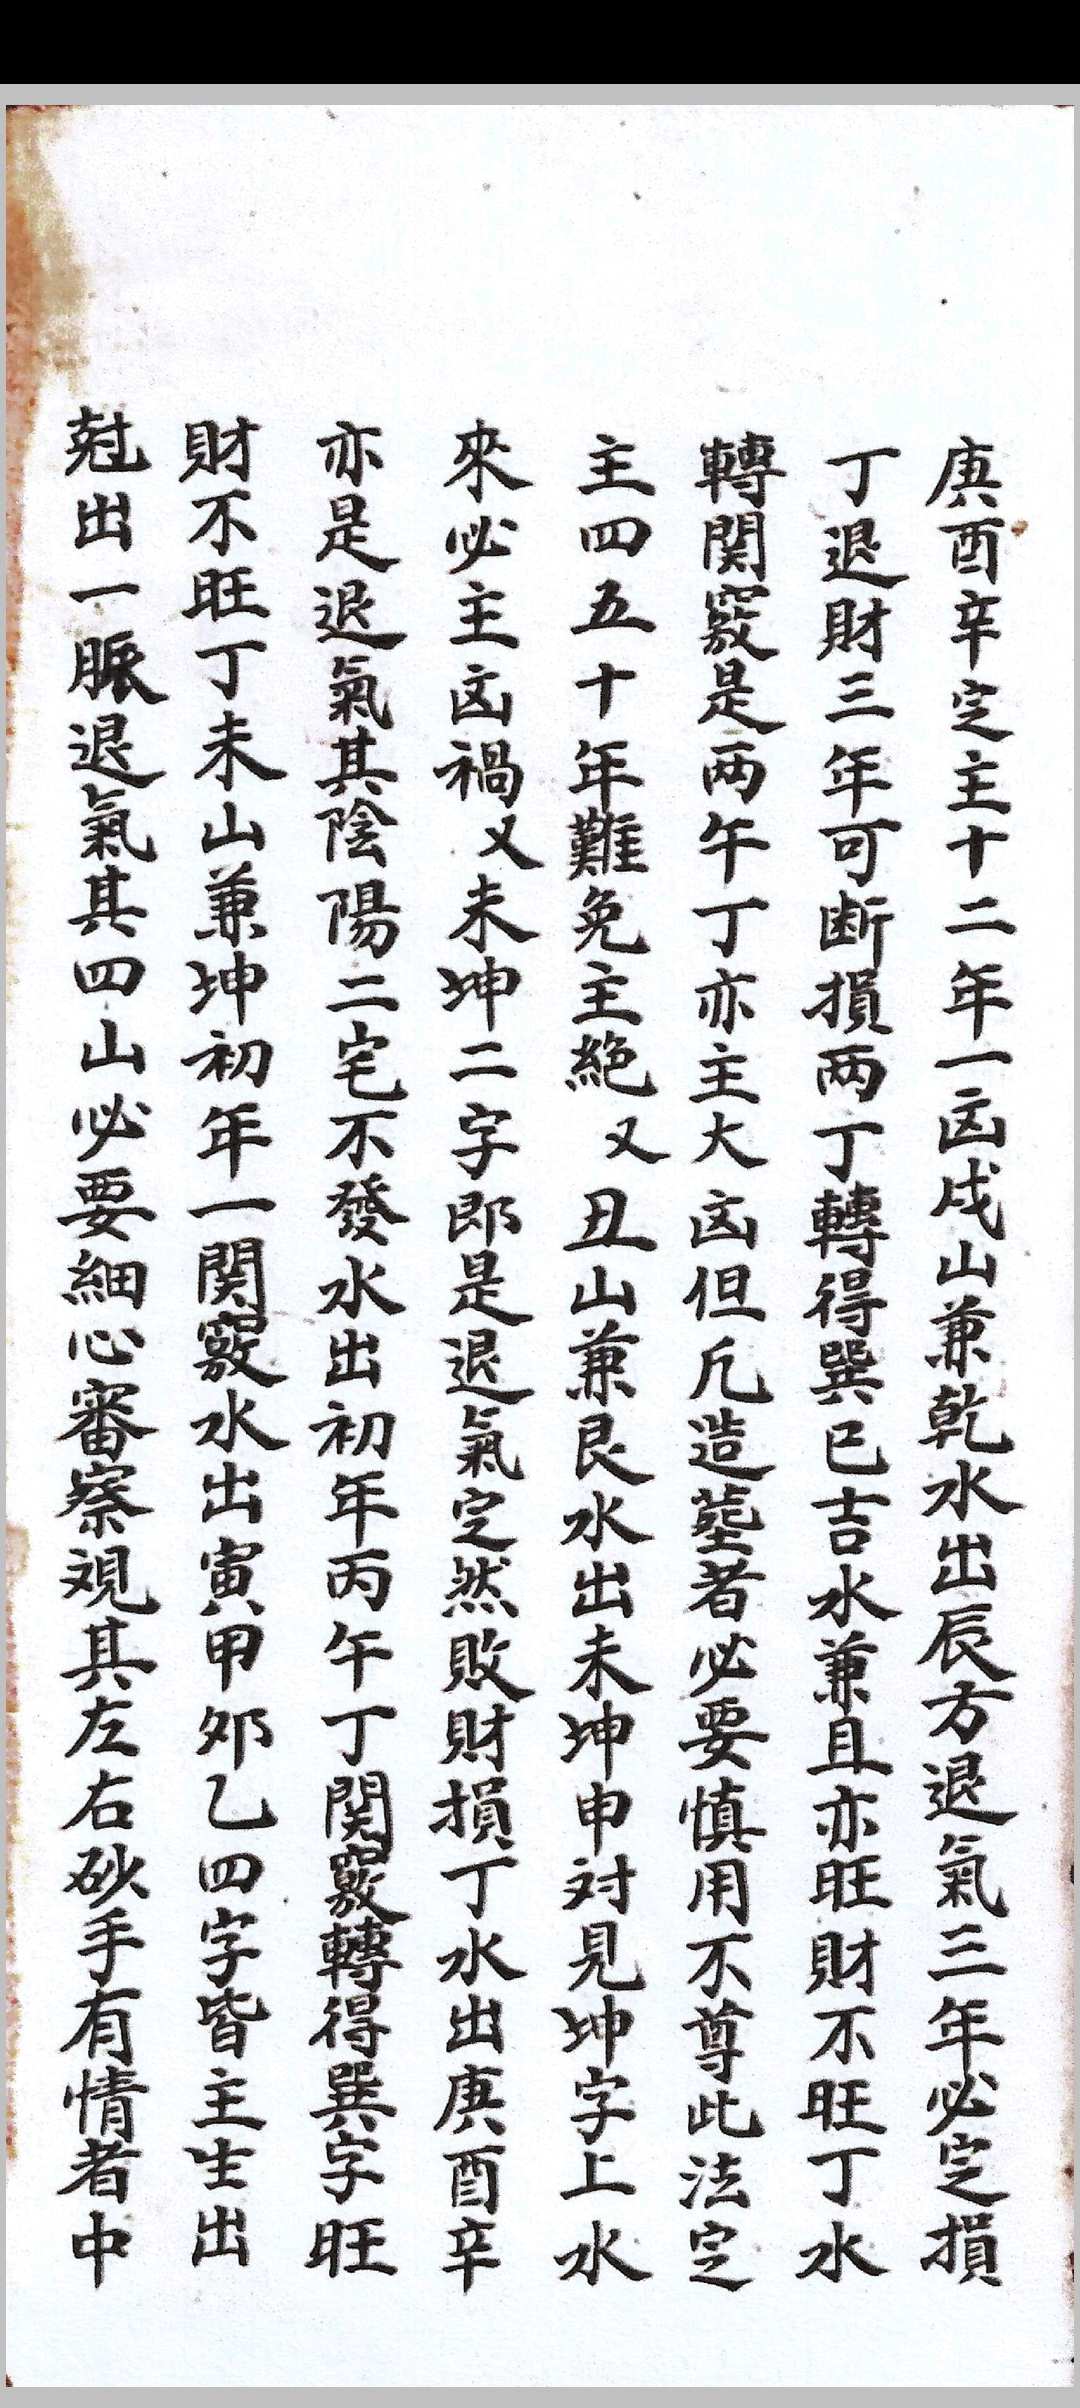 庚酉辛定主十二年一凶戌山兼乾水出辰方退氣三年必定損
丁退財三年可断損两丁轉得巽巳吉水兼且亦旺財不旺丁水
轉関竅是两午丁亦主大凶但凡造塟者必要慎用不尊此法定
主四五十年難免主絶又丑山兼艮水出未坤申対見坤字上水
來必主凶禍又未坤二字即是退氣定然敗財損丁水出庚酉辛
亦是退氣其陰陽二宅不發水出初年丙午丁関竅轉得巽字旺
財不旺丁未山兼坤初年一関竅水出寅甲夘乙四字皆主生出
尅出一脈退氣其四山必要細心審察視其左右砂手有情者中